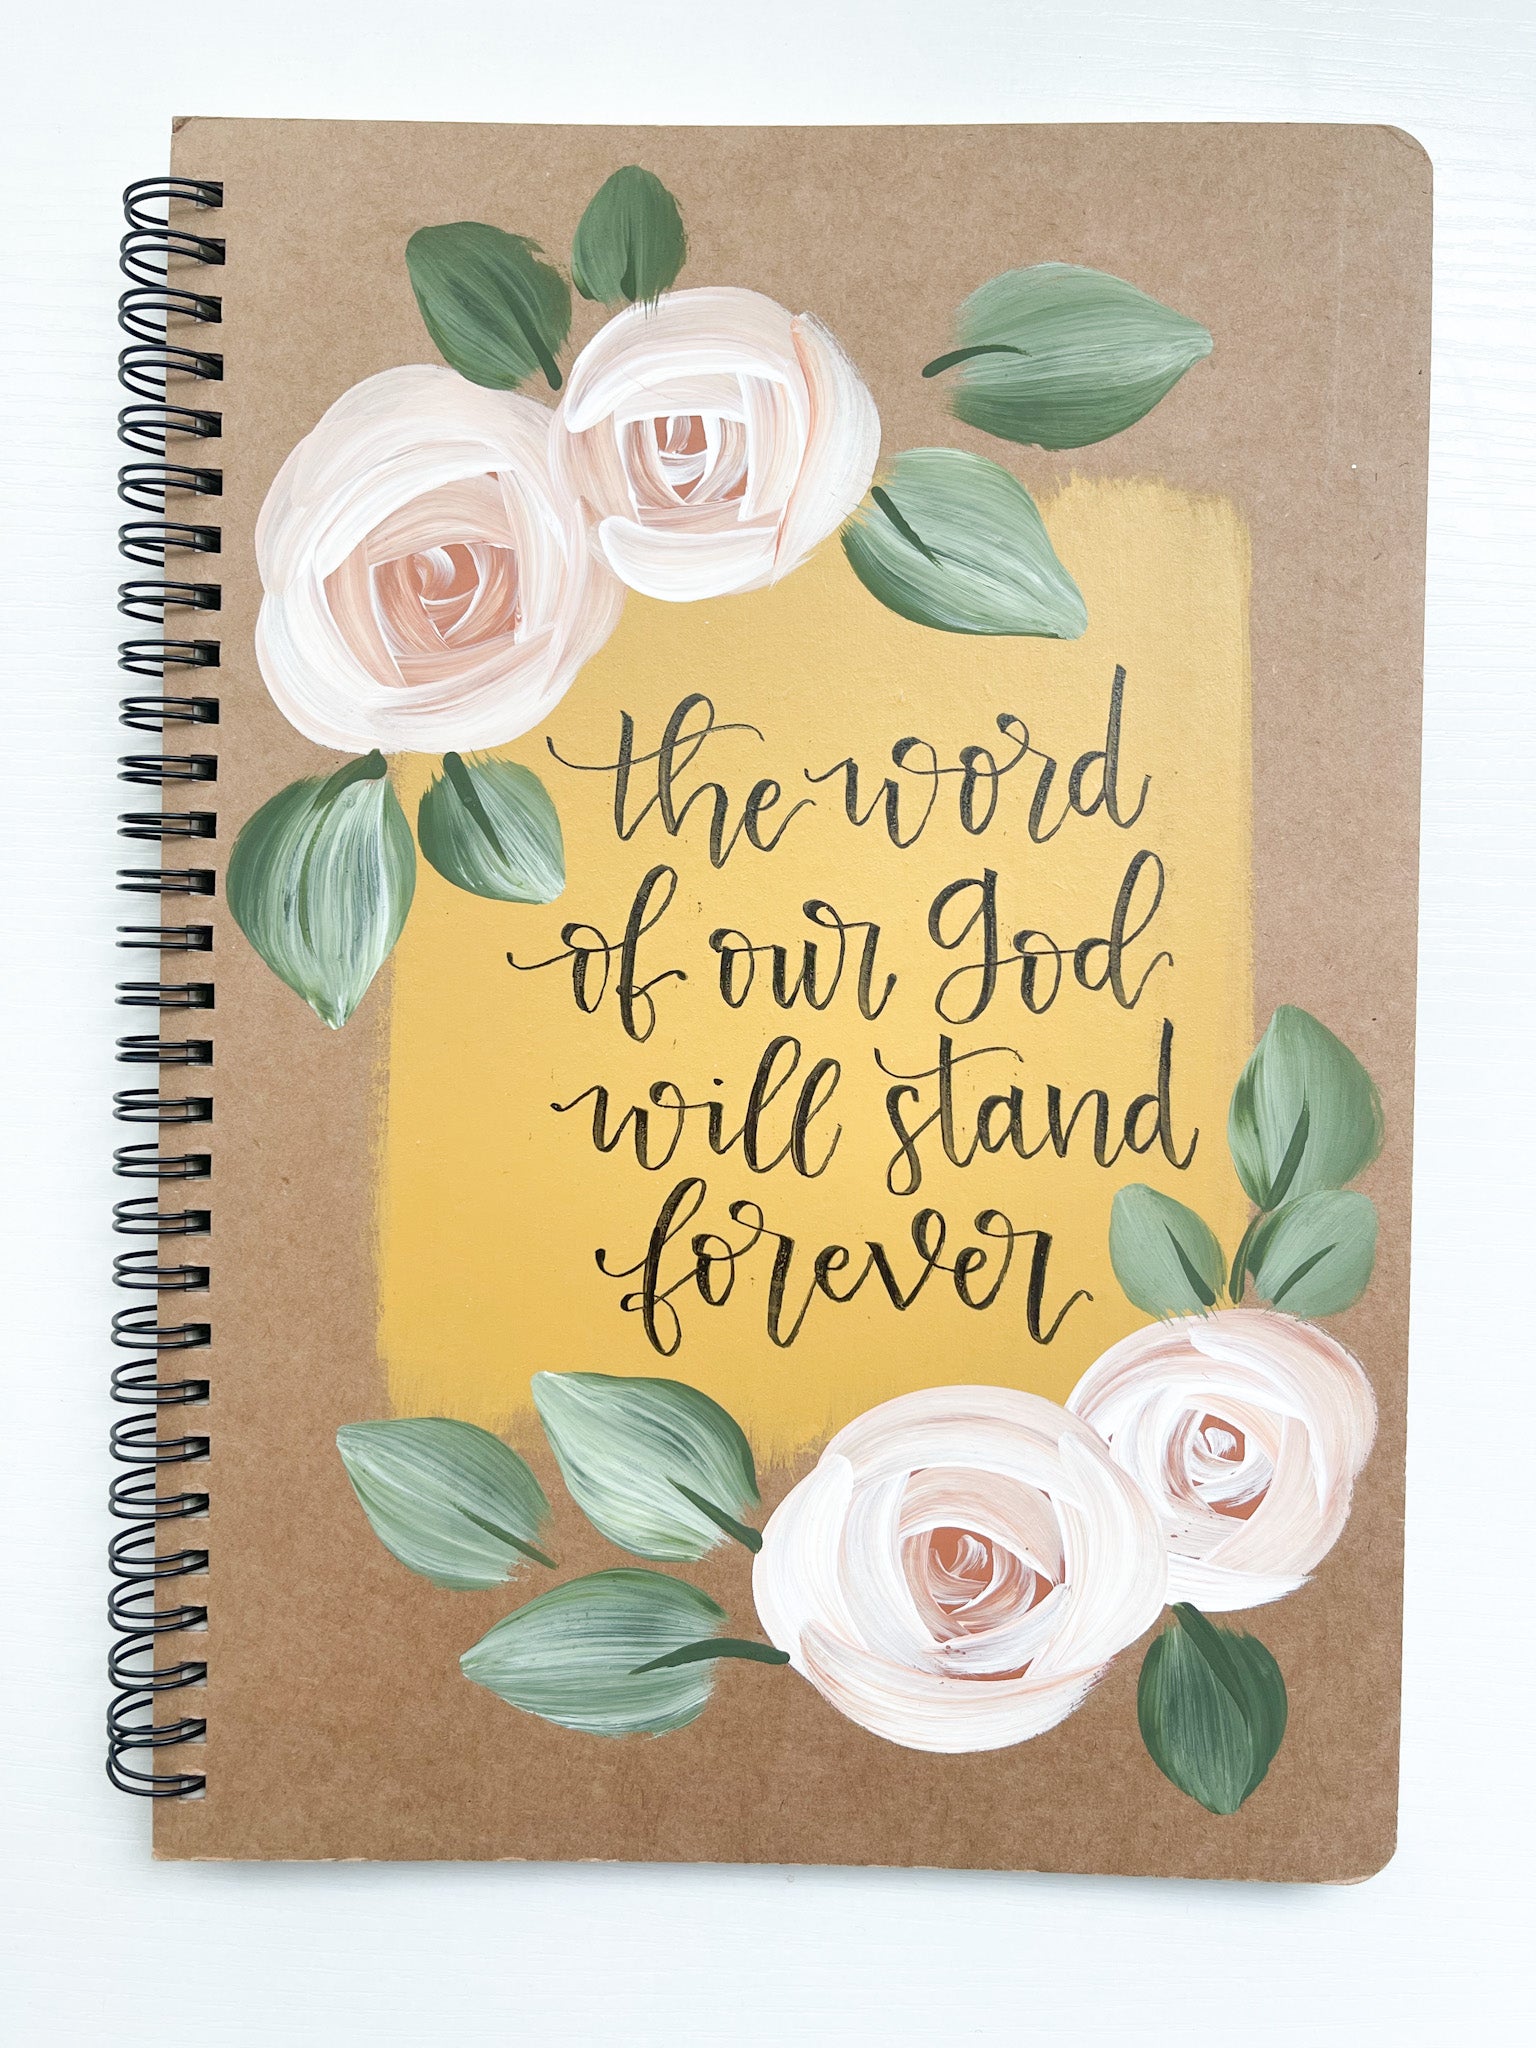 the word
of our God
will stand
forever